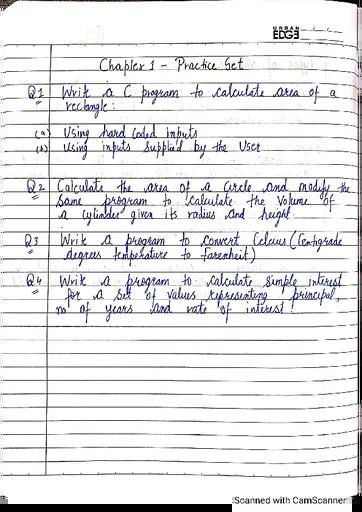 URBAN
EDGE
Chapter 1 - Practice Set
Q1 Write a C program to calculate area of a
rectangle:
(a) Using hard coded inputs
(b) Using inputs supplied by the User
Q2 Calculate the area of a Circle and modify the
same program to calculate the Volume of
a cylinder given its radius and height.
Q3 Write a program to convert Celcius (Centigrade
degrees temperature to Farenheit)
Q4 Write a program to calculate simple interest
for a set of values representing principal,
no of years and rate of interest.
Scanned with CamScanner